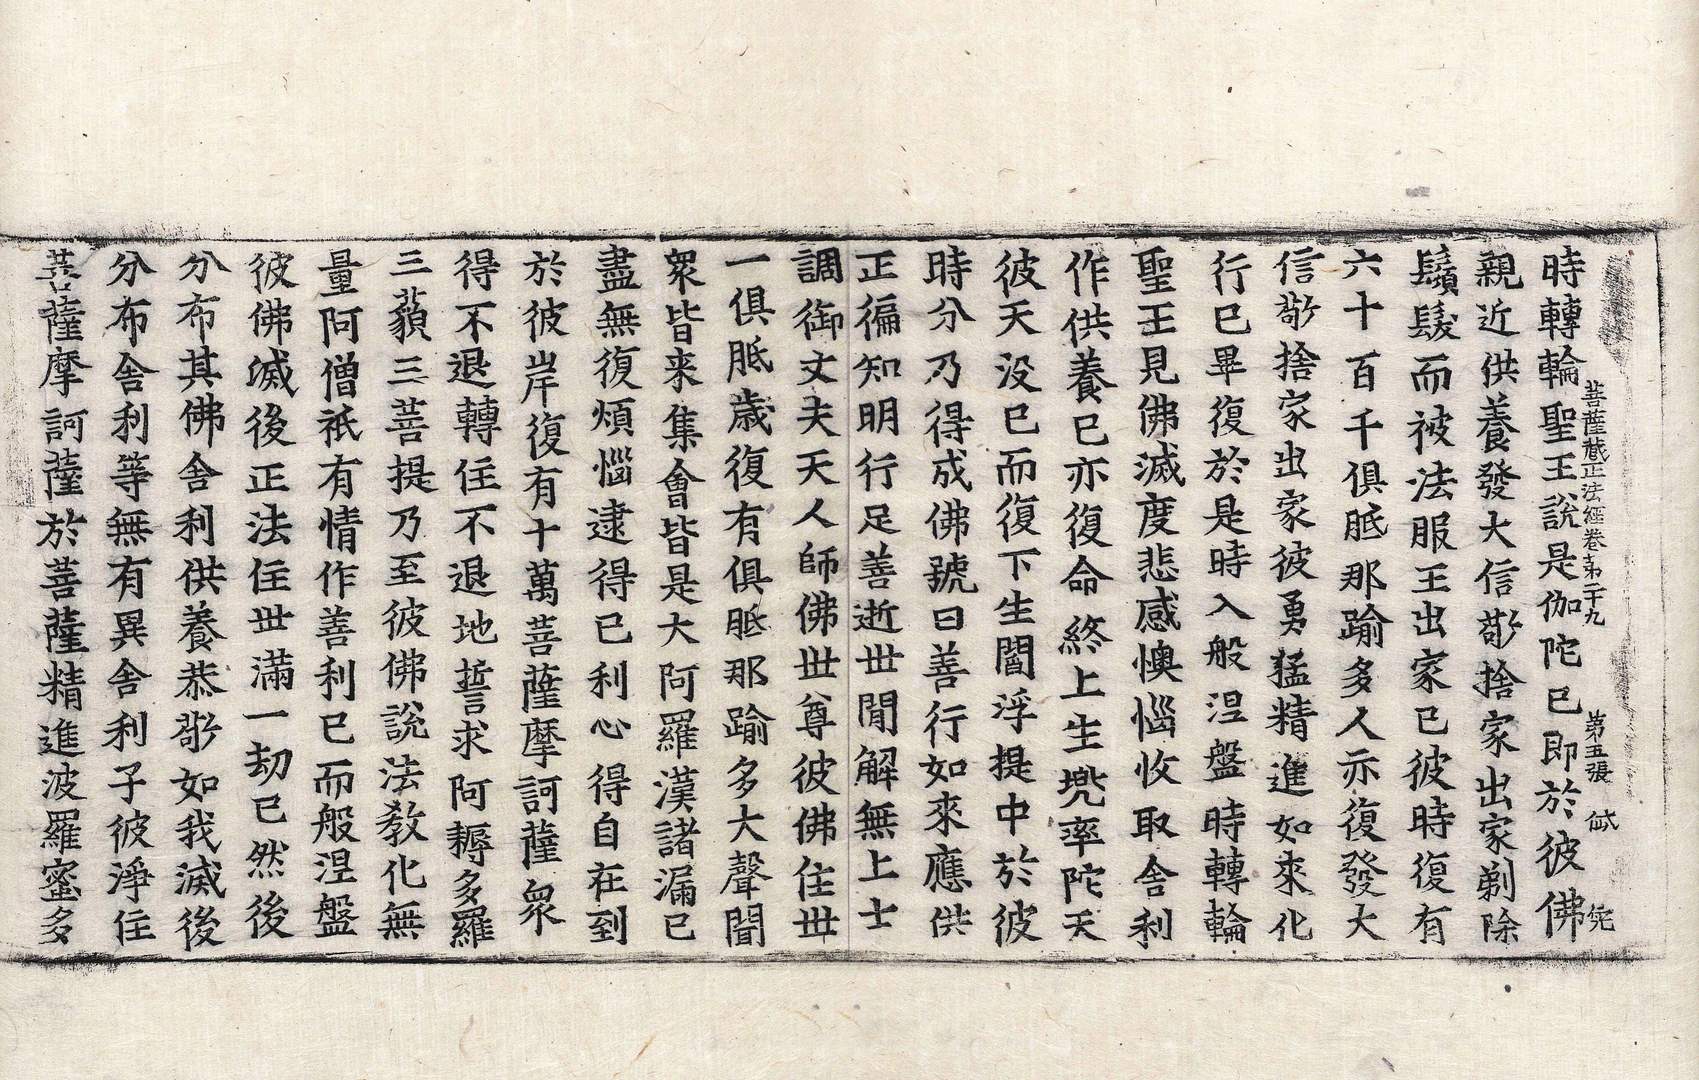 菩薩藏正法經卷第二十九　第五張　弒
時轉輪聖王說是伽陀已即於彼佛
親近供養發大信敬捨家出家剃除
鬚髮而被法服王出家已彼時復有
六十百千俱胝那踰多人亦復發大
信敬捨家出家彼勇猛精進如來化
行已畢復於是時入般涅盤時轉輪
聖王見佛滅度悲感懊惱收取舍利
作供養已亦復命終上生兠率陀天
彼天没已而復下生閻浮提中於彼
時分乃得成佛號曰善行如來應供
正徧知明行足善逝世間解無上士
調御丈夫天人師佛世尊彼佛住世
一俱胝歲復有俱胝那踰多大聲聞
衆皆来集會皆是大阿羅漢諸漏已
盡無復煩惱逮得已利心得自在到
於彼岸復有十萬菩薩摩訶薩衆
得不退轉住不退地誓求阿耨多羅
三藐三菩提乃至彼佛說法教化無
量阿僧祇有情作善利已而般涅盤
彼佛滅後正法住世滿一劫已然後
分布其佛舍利供養恭敬如我滅後
分布舍利等無有異舍利子彼淨住
菩薩摩訶薩於菩薩精進波羅蜜多